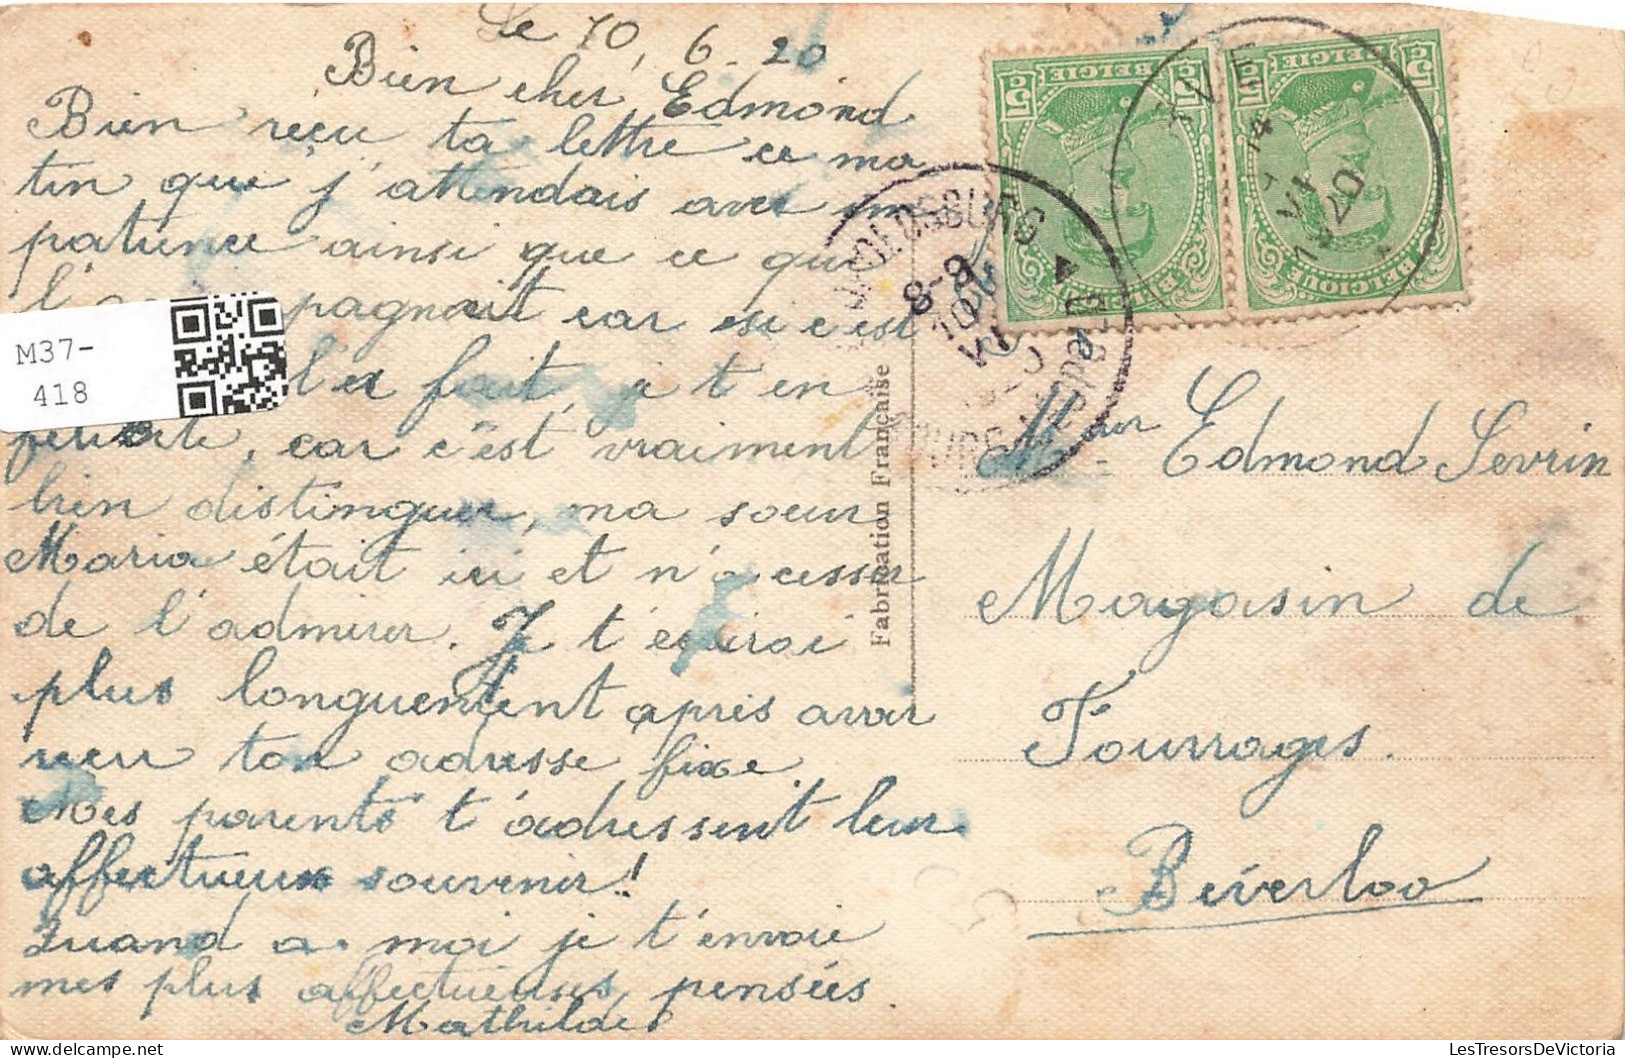 Le 10, 6 - 20
Bien cher Edmond
Bien reçu ta lettre ce ma
tin que j'attendais avec im
patience ainsi que ce qui
l' pagnait car ce c'est
l'a fait, je t'en
félicite, car c'est vraiment
bien distinguer, ma soeur
Maria était ici et n'a cesser
de l'admirer. Je t'écirai
plus longuement après avoir
reçu ton adresse fixe
Mes parents t'adressent leur
affectueux souvenir!
Quand a moi je t'envoie
mes plus affectueuses pensées
Mathilde
M37-
418
Fabrication Française
5 BELGIE 5
BELGIQUE
5 BELGIE 5
BELGIQUE
14
VI
1920
8-9
10
VI
Mr Edmond Sevrin
Magasin de
Fourrages.
Béverloo
LesTresorsDeVictoria.com